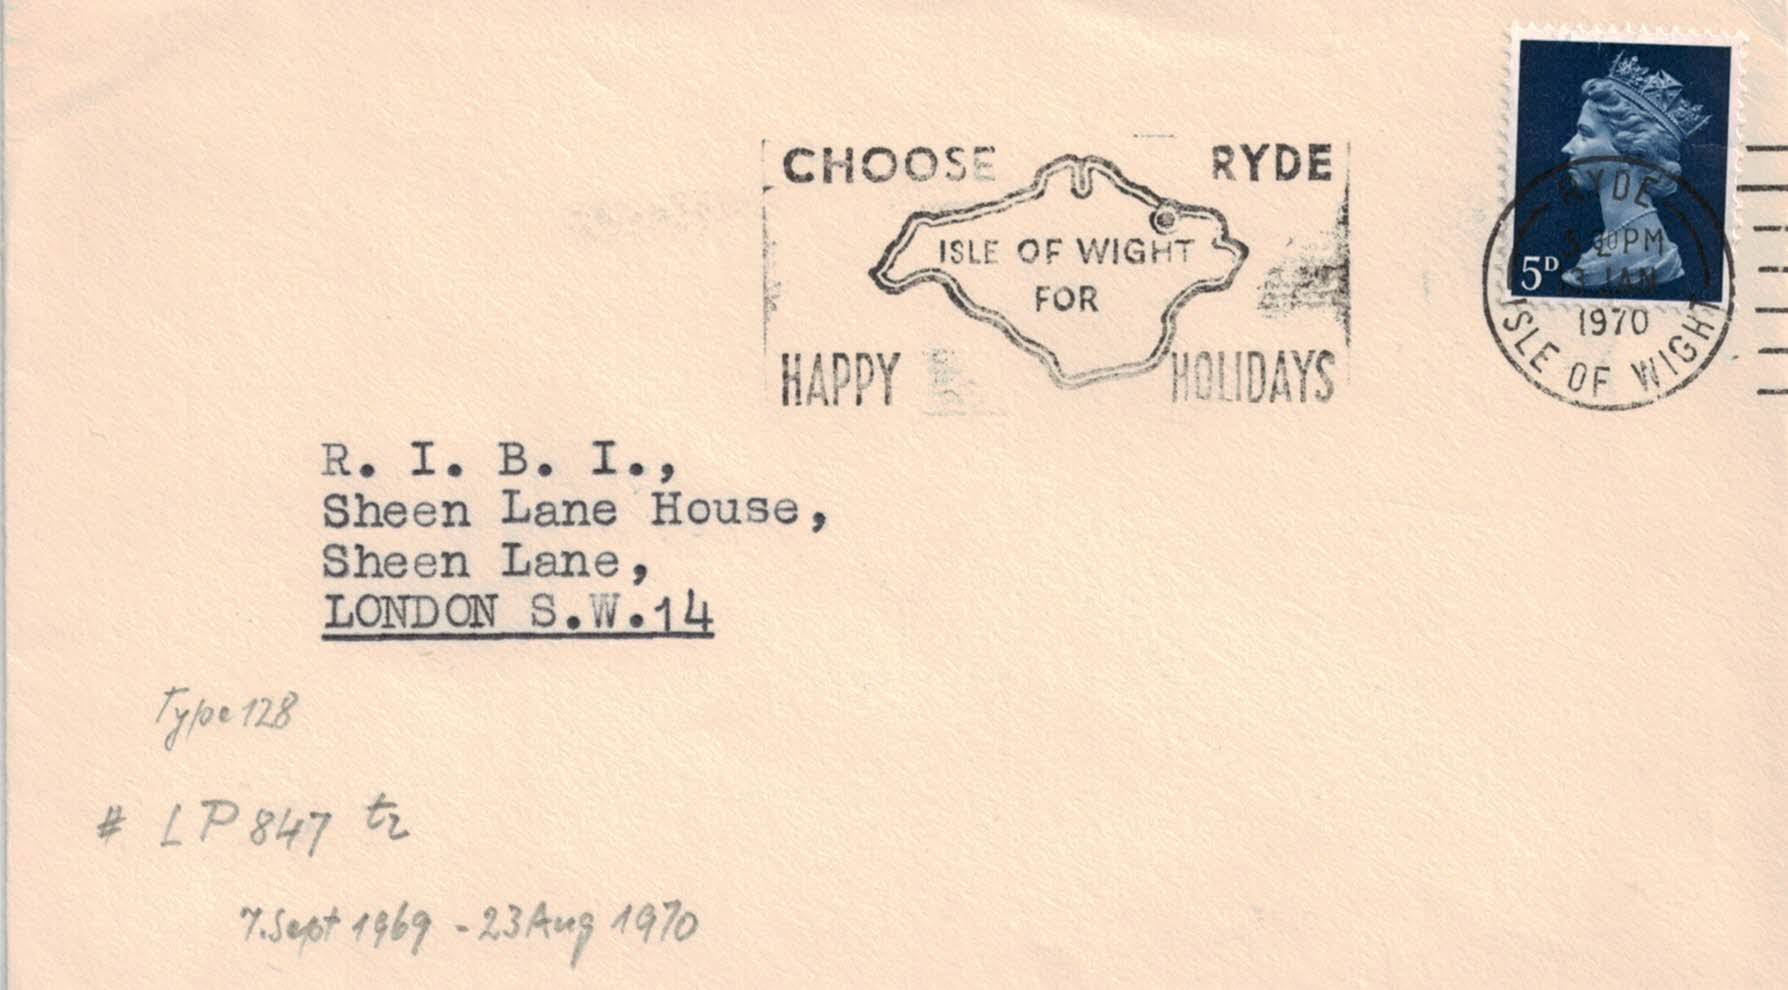 CHOOSE RYDE
ISLE OF WIGHT
FOR
HAPPY HOLIDAYS
RYDE
PM
JAN
1970
ISLE OF WIGHT
5D
R. I. B. I.,
Sheen Lane House,
Sheen Lane,
LONDON S.W.14
Type 128
# LP 847 t2
7.Sept 1969 - 23 Aug 1970